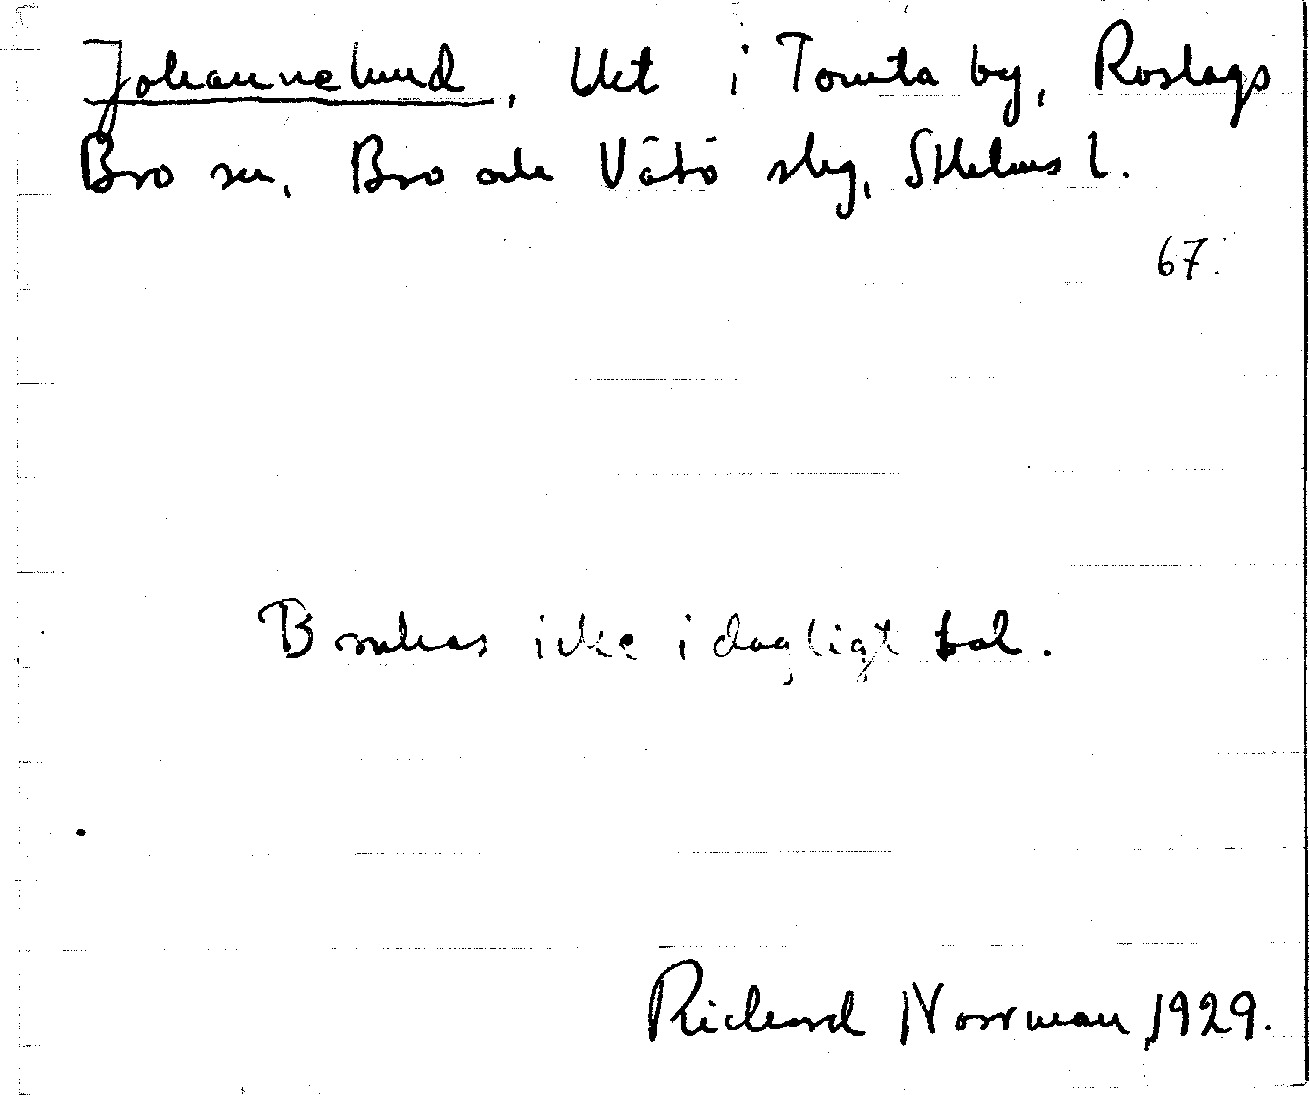 Johannelund, Uet i Tomta by, Roslags
Bro sn, Bro och Vätö slg, Sthlms l.
67.
Brukas icke i dagligt tal.
Richard Norrman, 1929.